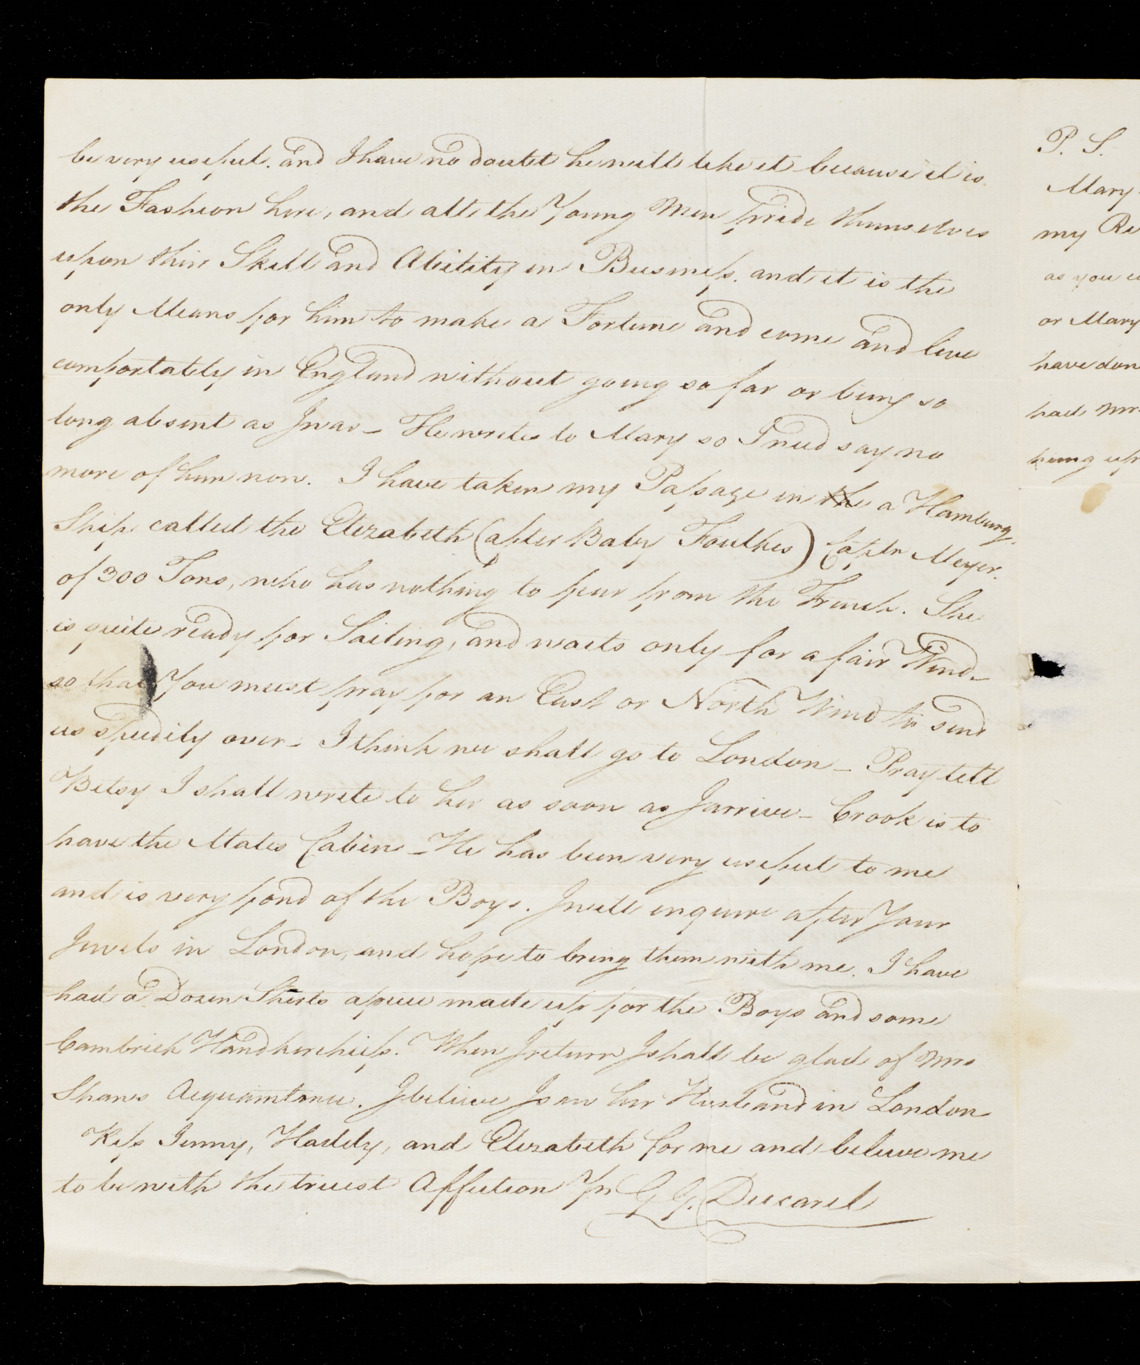 be very useful. and I have no doubt he will like it because it is
the Fashion here, and all the Young Men pride themselves
upon their Skill and Ability in Business. and it is the
only Means for him to make a Fortune and come and live
comfortably in England without going so far or being so
long absent as I was – He writes to Mary so I need say no
more of him now. I have taken my Passage in the a Hamburg
Ship called the Elizabeth (after Baby Foulkes) Captn Meyer.
of 300 Tons, who has nothing to fear from the French. She
is quite ready for Sailing, and waits only for a fair Wind–
so that You must pray for an East or North Wind to send
us speedily over – I think we shall go to London – Pray tell
Betsy I shall write to her as soon as I arrive – Crook is to
have the Mates Cabin – He has been very useful to me
and is very fond of the Boys. I will enquire after Your
Jewels in London, and hope to bring them with me. I have
had a Dozen Shirts apiece made up for the Boys and some
Cambrick Handkerchiefs. When I return I shall be glad of Mrs
Shaws Acquaintance. I believe I saw her Husband in London
Kiss Jenny, Haddy, and Elizabeth for me and believe me
to be with the truest Affection Yrs G G. Ducarel
P. S.
Mary
my Re
as you
or Mary
have don
had Mr
being up